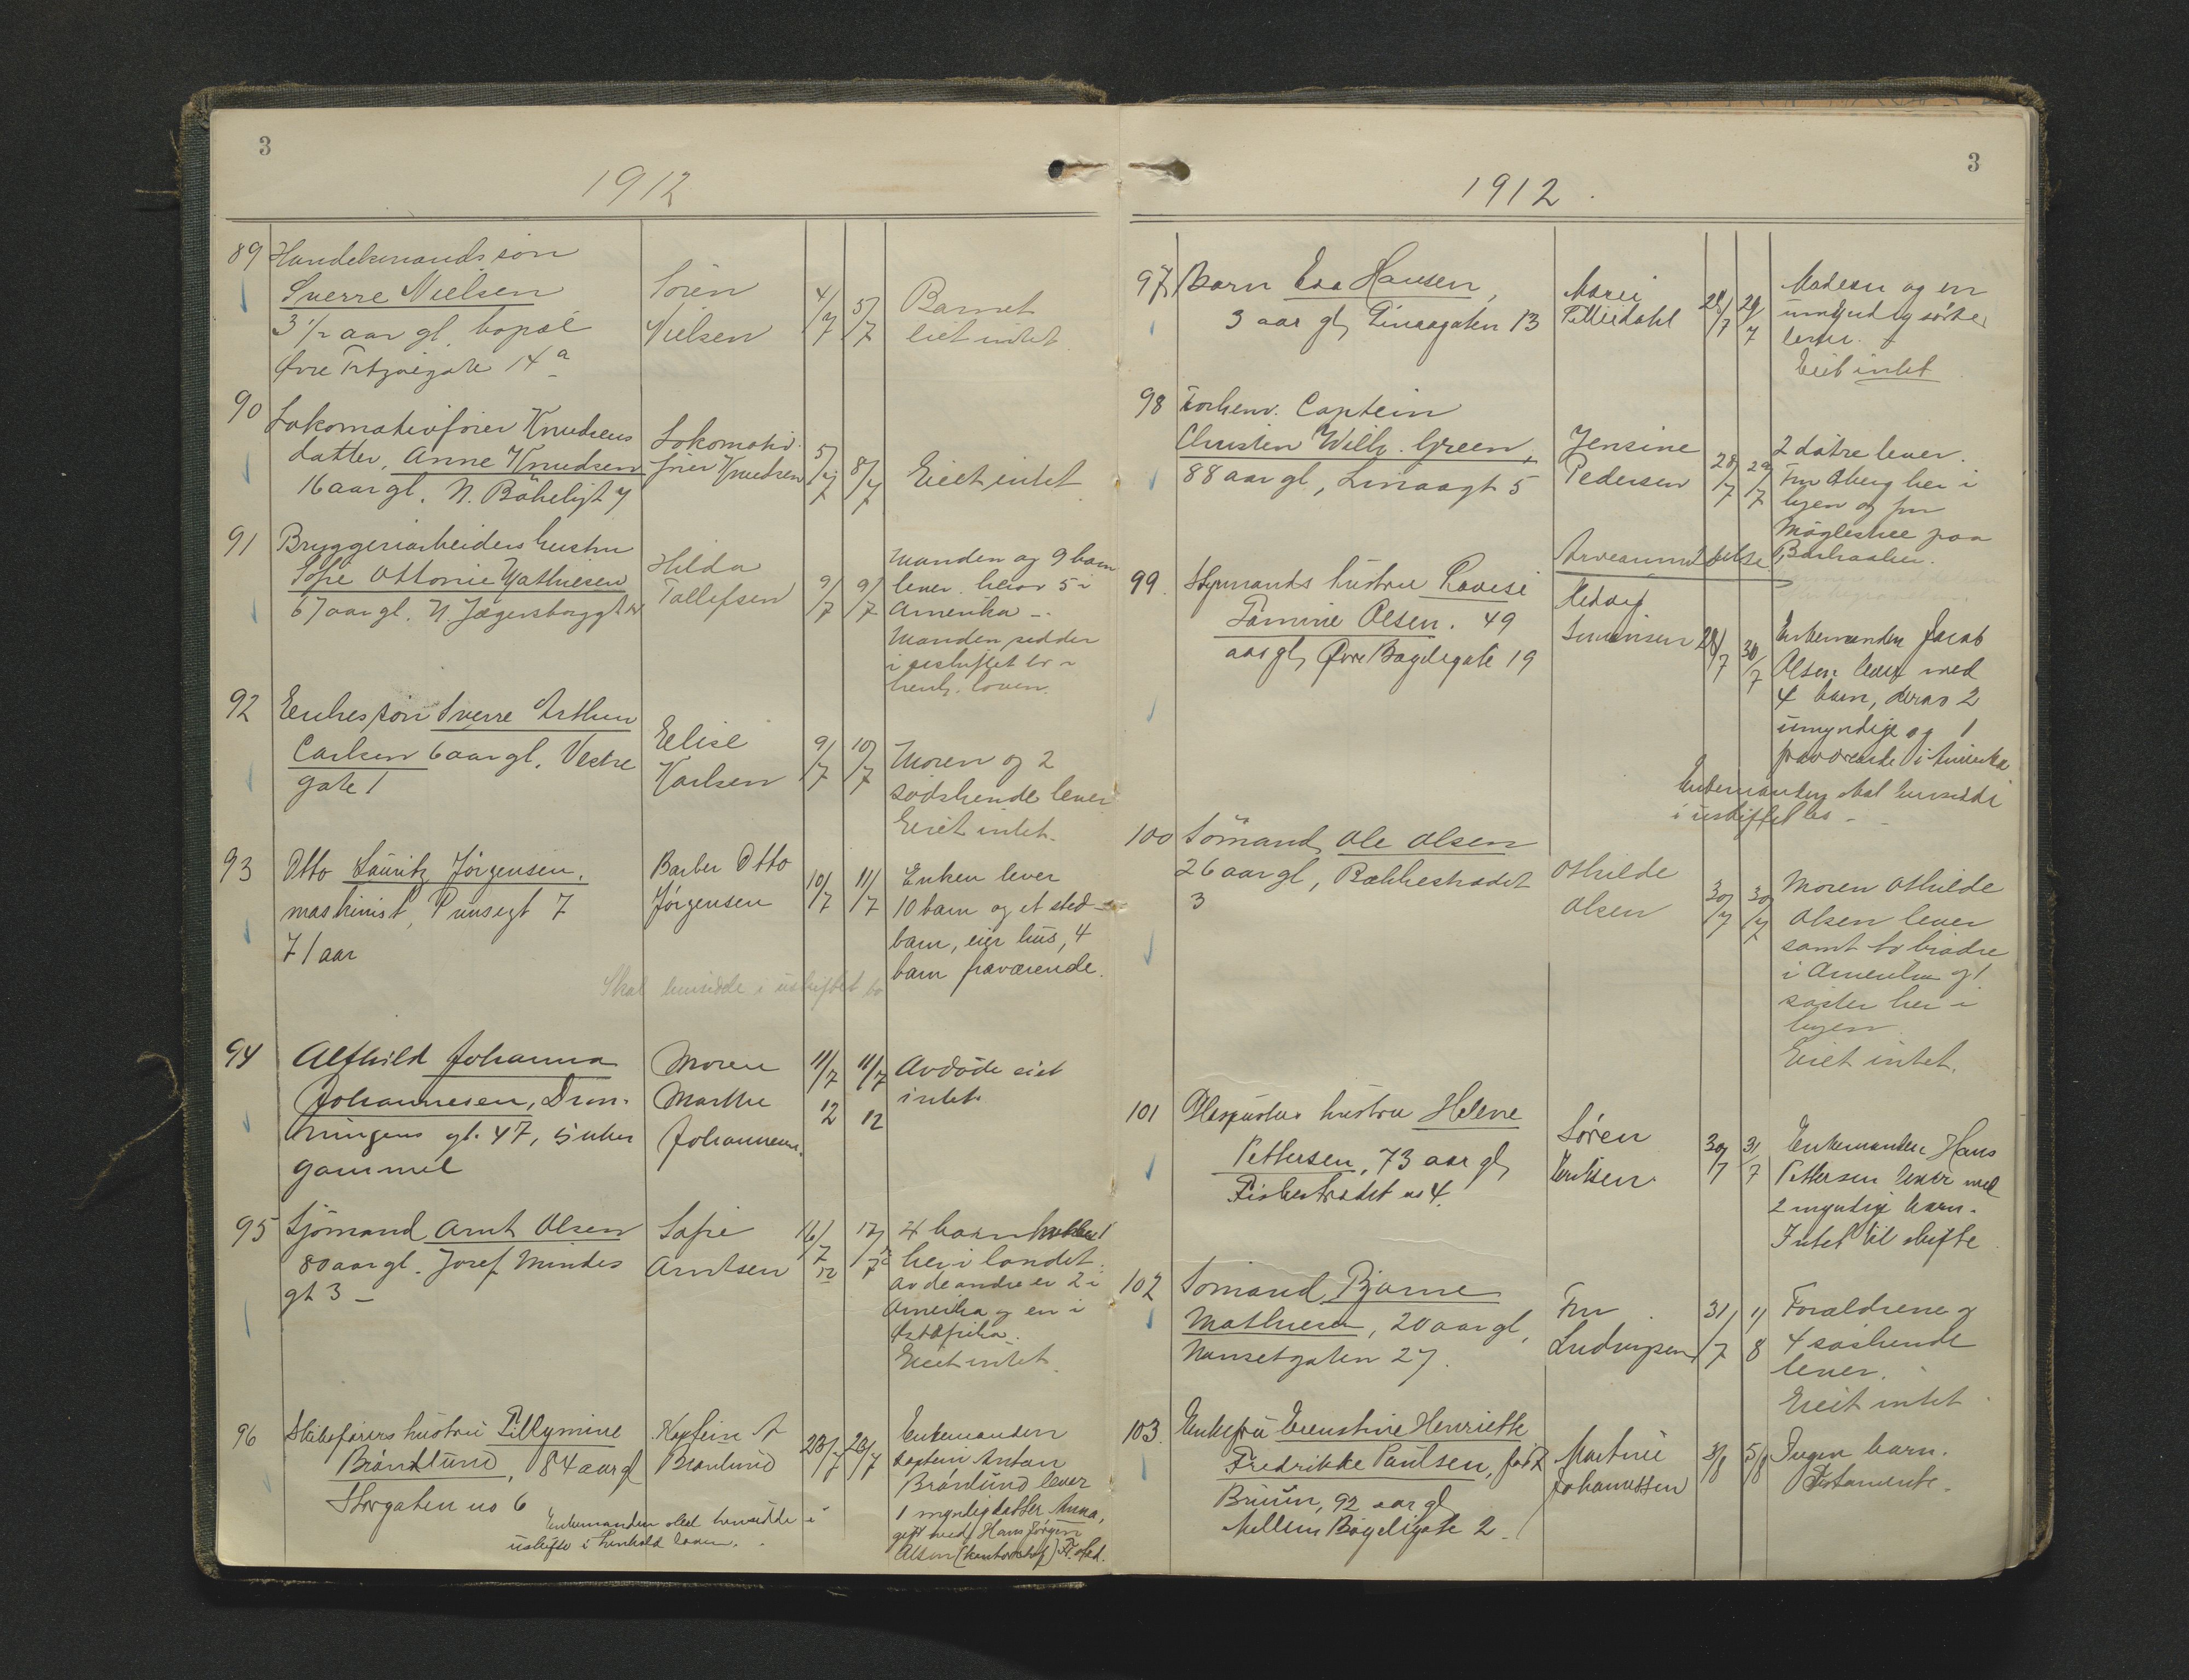 3
1912
89 Handelsmands søn
Sverre Nielsen
3 1/2 aar gl. bopæl
Øvre 14 a
Sören
Nielsen
4/7 5/7
Barnet
eiet intet
90 Lokomotivfører Knudsens
datter, Anne Knudsen
16 aar gl. N. Bökeligt 7
Lokomotiv-
fører Knudsen
5/7 8/7
Eiet intet
91 Bryggeriarbeiders hustru
Sofie Ottonie Mathiesen
67 aar gl. N. Jægersborggt
Hilda
Tollefsen
9/7 9/7
Manden og 9 barn
lever. herav 5 i
Amerika –
Manden sidder
i uskiftet bo i
henh. loven.
92 Enkes søn Sverre Arthur
Carlsen 6 aar gl. Vestre
gate 1
Elise
Karlsen
9/7 10/7
Moren og 2
södskende lever
Eiet intet.
93 Otto Lauritz Jörgensen,
maskinist, Prinsegt 7
71 aar
Barber Otto
Jörgensen
10/7 11/7
Enken lever
10 barn og et sted-
barn, eier hus, 4
barn fraværende.
Skal hensidde i uskiftet bo
94 Alfhild Johanna
Johannesen, Dron-
ningens gt. 47, 5 uker
gammel
Moren
Marthe
Johannesen.
11/7 12 11/7 12
Avdöde eiet
intet.
95 Sjömand Arnt Olsen
80 aar gl. Josef Mindes
gt 3 –
Sofie
Arntsen
16/7 12 17/7 12
4 barn hvorav 1
her i landet.
Av de andre er 2 i
Amerika og en i
Østafrika.
Eiet intet.
96 Skibsförers hustru
Brönlund, 84 aar gl
Storgaten no 6
Kaptein A
Brönlund
23/7 23/7
Enkemanden
kaptein Anton
Brönlund lever
1 myndig datter Anna,
gift med Hans Jörgen
Olsen
Enkemanden skal hensidde i
uskifte i henhold loven.
3
1912.
97 Barn Eva Hansen,
3 aar gl, Linaagaten 13
Marie
Petterdahl
28/7 29/7
Moderen og en
umyndig söster
lever.
Eiet intet
98 Forhenv. Captein
Christen Wilh. Green,
88 aar gl, Linaagt 5
Jensine
Pedersen
28/7 29/7
2 dötre lever.
Fru Aberg her i
byen og fru
paa
99. Styrmands hustru Lovise
Tomine Olsen. 49
aar gl, Øvre Bøgeligate 19
Hedvig
Simonsen
28/7 30/7
Enkemanden Jacob
Olsen lever med
4 barn, derav 2
umyndige og 1
fraværende i Amerika
Enkemanden skal hensidde
i uskiftet bo –
100 Sömand Ole Olsen
26 aar gl, Bakkestrædet
3
Othilde
Olsen
30/7 30/7
Moren Othilde
Olsen lever
samt to brödre
i Amerika og 1
söster her i
byen
Eiet intet.
101 hustru Helene
Pettersen, 73 aar gl,
Fiskestrædet no 4.
Sören
Eriksen
30/7 31/7
Enkemanden Hans
Pettersen lever med
2 myndige barn.
Intet til skifte
102 Sömand Bjarne
Mathiesen, 20 aar gl,
Nansetgaten 27.
Fru
Ludvigsen
31/7 1/8
Forældrene og
4 söskende
lever.
Eiet intet
103. Enkefru Ernstine Henriette
Fredrikke Paulsen, född
Bruun, 92 aar gl
Mellem Bögeligate 2
Martine
Johannessen
3/8 5/8
Ingen barn.
Testamente.